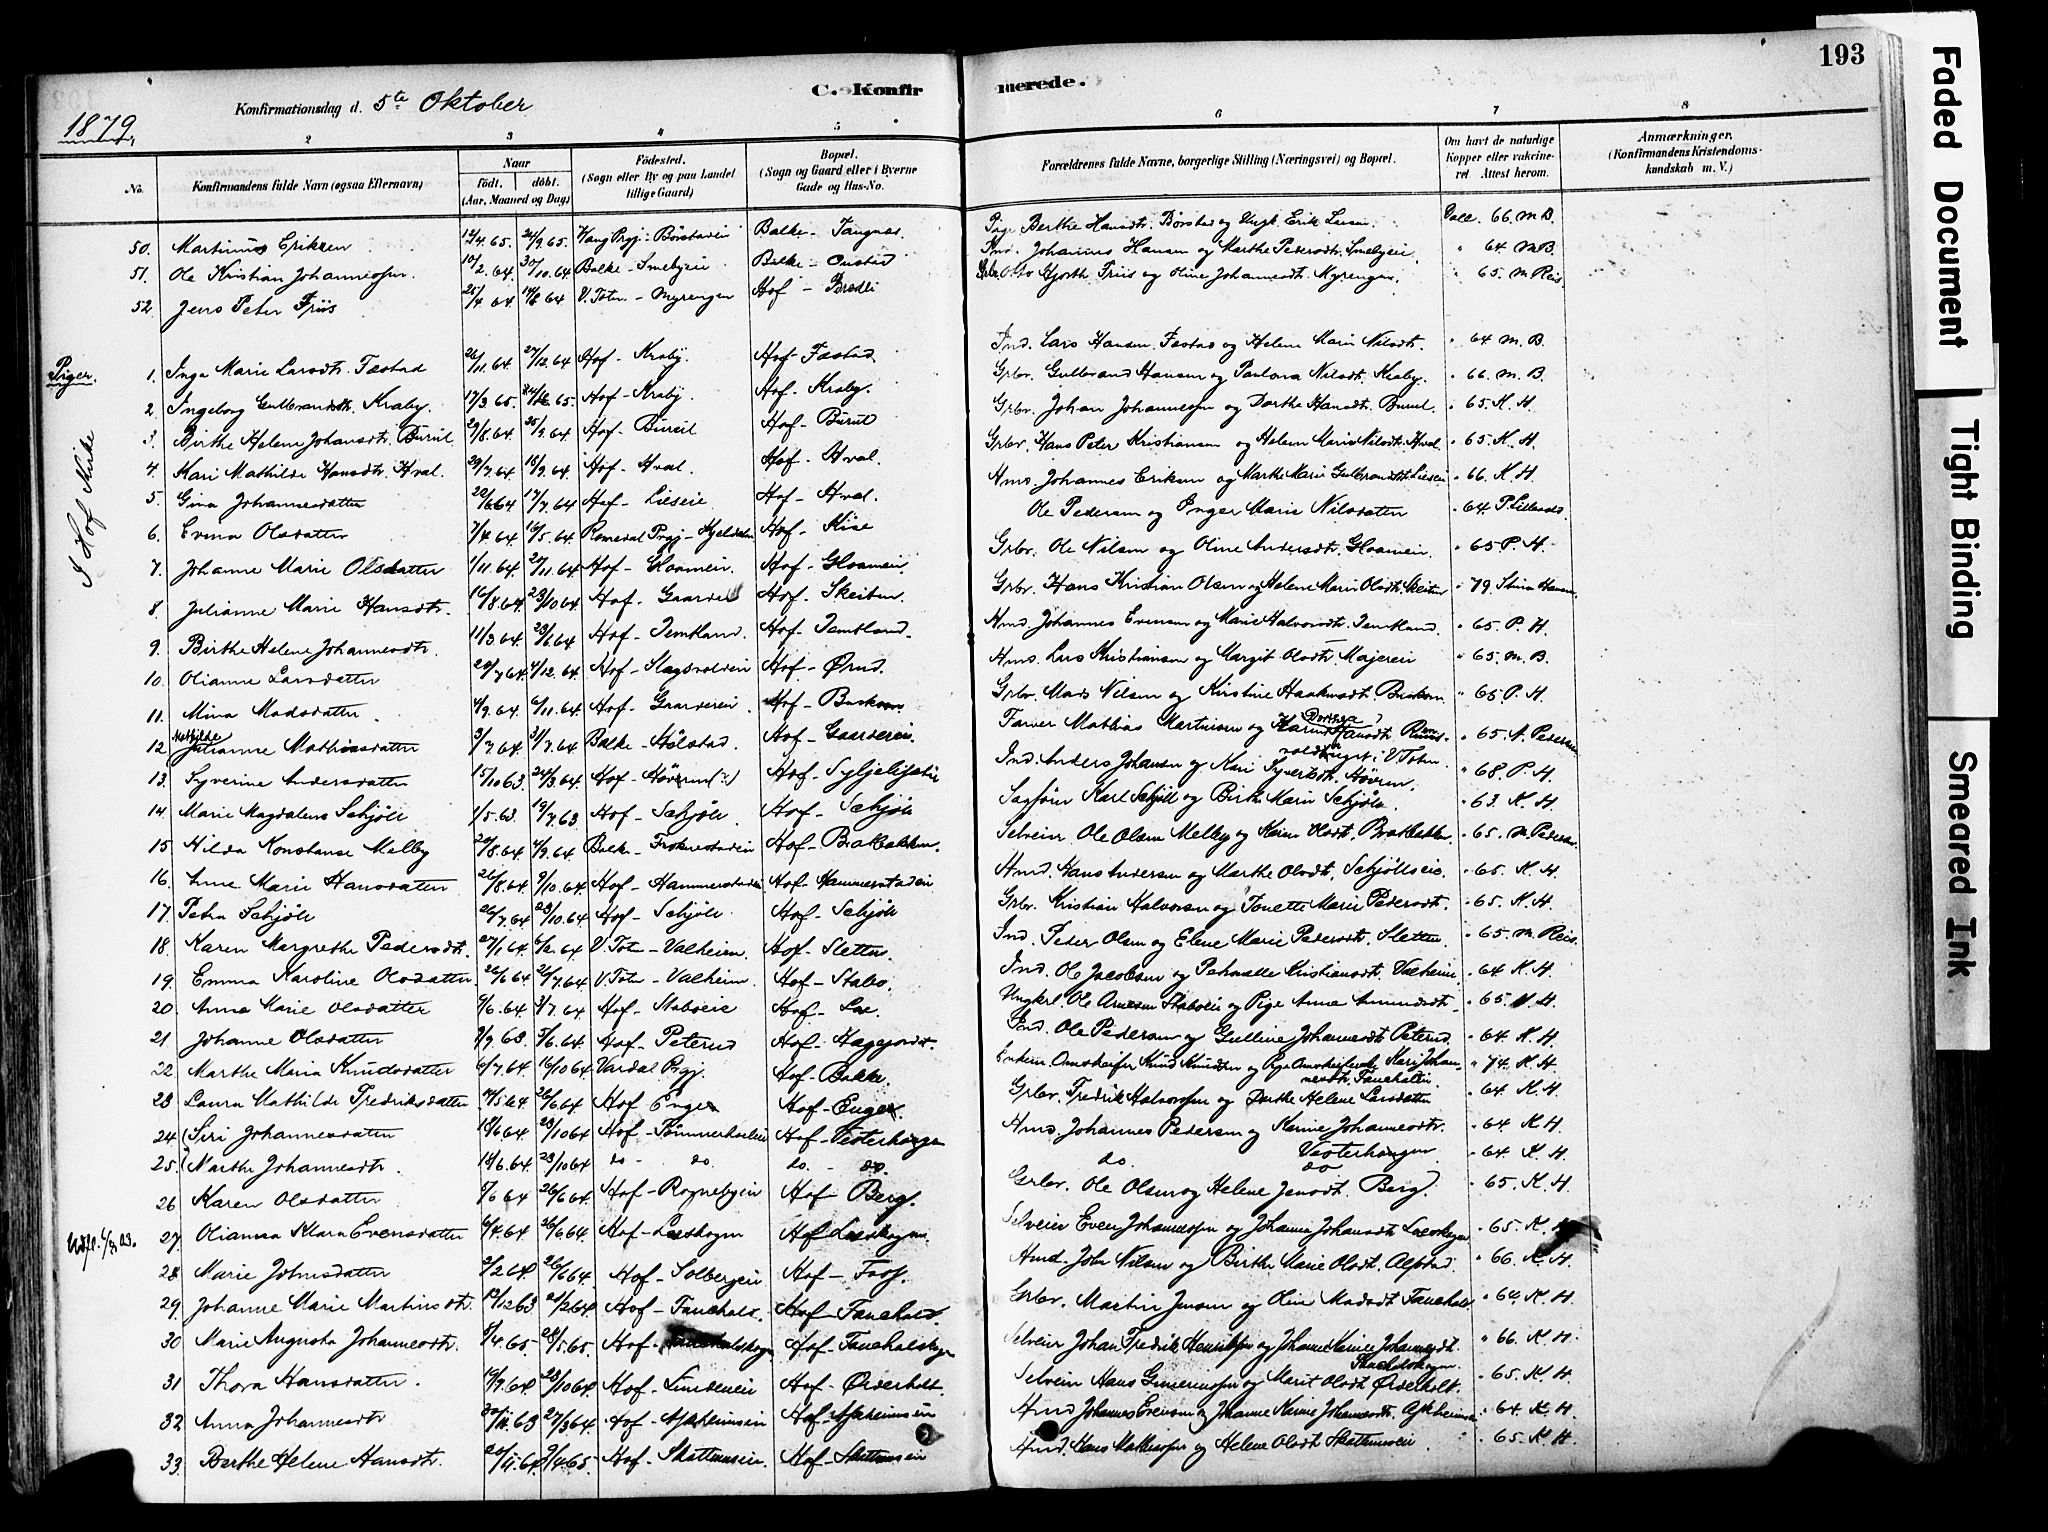 193
C. Konfirmerede.
Konfirmationsdag d. 5te Oktober
1879
2 3 4 5 6 7 8
No.
Konfirmandens fulde Navn (ogsaa Efternavn)
Naar
født. døbt.
(Aar, Maaned og Dag)
Fødested.
(Sogn eller By og paa Landet tillige Gaard)
Bopæl.
(Sogn og Gaard eller i Byerne Gade og Hus-No.
Forældrenes fulde Navne, borgerlige Stilling (Næringsvei) og Bopæl.
Om havt de naturlige Kopper eller vaccineret. Attest herom.
Anmærkninger.
(Konfirmandens Kristendomskundskab m. V.)
50. Martinus Eriksen 12/4.65. 24/9.65. Vang Prgj - Børstadeie Balke - Tangnæs Pige Berthe Hansdt. Børstad og Ungk. Erik Larsen. Vacc. 66. M.B.
51. Ole Kristian Johannessen 10/2.64. 30/10.64 Balke - Smebyeie Balke - Onstad Ind. Johannes Hansen og Marthe Pedersdt. Smebyeie. " 64 M.B.
52. Jens Peter Friis 25/4 64 V. Toten - Myrengen Hof - Brædli Hjorth Friis og Oline Johannesdt. Myrengen. " 65. M. Reis.
Piger.
I Hof Kirke
1. Inga Marie Larsdt. Fæstad 26/11.64 27/12.64 Hof - Kraby. Hof - Fæstad Ind. Lars Hansen Fæstad og Helene Marie Nilsdt. " 64 M.B.
2. Ingeborg Gulbrandsdt. Kraby. 17/3.65. Hof - Kraby Hof - Kraby. Grbr. Gulbrand Hansen og Paulova Nilsdt. Kraby. " 66. M.B.
3. Birthe Helene Johansdt. Burul 29/8.64. 25/9.64 Hof - Burul Hof - Burul Grbr. Johan Johannessen og Dorthe Hansdt. Burul. " 65. K.H.
4. Kari Mathilde Hansdt. Hval. 29/7.64 18/9.64 Hof - Hval. Hof - Hval. Grbr. Hans Peter Kristiansen og Helene Marie Nilsdt. Hval " 65. K.H.
5. Gina Johannesdatter 22/6 64 17/7.64 Hof - Lieseie Hof - Hval. Hms. Johannes Eriksen og Marthe Marie Gulbrandsdt. Lieseie " 66. K.H.
6. Evena Olsdatter 7/4.64. 16/5.64 Romedal Prgj - Hof - Kise Ole Pedersen og Inger Marie Nilsdatter " 64
7. Johanne Marie Olsdatter 1/11.64. 27/11.64 Hof - Gloameie. Hof - Gloameie. Grbr. Ole Nilsen og Oline Andersdt. Gloameie. " 65 P.H.
8. Julianne Marie Hansdt. 16/8.64 23/10.64 Hof - Gaarder Hof - Skeiten. Grbr. Hans Kristian Olsen og Helene Marie Olsdt. Skeiten " 79. Stina Hansen
9. Birthe Helene Johannesdt. 11/3.64 23/1.64 Hof - Jemtland. Hof - Jemtland. Hmd. Johannes Evensen og Marie Halvorsdt. Jemtland. " 65. P.H.
10. Olianne Larsdatter 20/7 64 4/12.64 Hof - Slagsvoldeie Hof - Ørud. Hms. Lars Kristiansen og Margit Olsdt. Majereie " 65. M.B.
11. Mina Madsdatter. 4/9.64. 6/11.64 Hof - Gaardereie. Hof - Buskom Grbr. Mads Nilsen og Kirstine Haakensdt. Buskom " 65. P.H.
12 Mathilde Julianne Mathiasdatter 3/7.64 31/7.64 Balke - Stølstad. Hof - Gaardereie. Farver Mathias Martinsen og Dorthea Hansdt. V. Toten. " 65. A. Pedersen
13. Syverine Andersdatter 15/10 63 24/3.64. Hof - Høveren(?) Hof - Ind. Anders Johansen og Kari Syvertsdt. Høveren. " 68. P.H.
14. Marie Magdalene Schjøll 1/5.63. 19/7.63 Hof - Schjøll. Hof - Schjøll Sagfører Karl Schjøll og Birthe Marie Schjøll. " 63. K.H.
15. Hilda Konstanse Melby 20/8.64 4/9.64. Balke - Frokerstadeie Hof - Brakbakken. Selveier Ole Olsen Melby og Karen Olsdt. Brakbakken. " 65. M. Pedersen
16. Anne Marie Hansdatter 26/8.64 9/10.64 Hof - Hammerstadeie Hof - Hammerstadeie Hmd. Hans Andersen og Marthe Olsdt. Schjøllseie. " 65. K.H.
17. Petra Schjøll 26/7.64 23/10.64 Hof - Schjøll. Hof - Schjøll Grbr. Kristian Halvorsen og Tonette Marie Pedersdt. " 65. K.H.
18. Karen Margrethe Pedersdt. 27/1.64 6/2.64 V. Toten - Valheim. Hof - Sletten. Ind. Peder Olsen og Elene Marie Pedersdt. Sletten. " 65. M. Reis.
19. Emma Karoline Olsdatter. 26/6 64 26/7.64 V. Toten - Valheim. Hof - Stabo. Ind. Ole Jacobsen og Pernelle Kristiansdt. Valheim. " 64 K.H.
20. Anne Marie Olsdatter 9/6.64 3/7.64 Hof - Staboeie Hof - Loe. Ungkrl. Ole Arnesen Staboeie og Pige Anne Amundsdt. " 65. K.H.
21 Johanne Olsdatter 7/9.63. 5/6.64 Hof - Peterud Hof - Haggjordet. Ind. Ole Pedersen og Gulline Johannesdt. Peterud. " 64. K.H.
22. Marthe Maria Knudsdatter 6/7.64. 16/10 64 Vardal Prgj. Hof - Bakke. Enkem. Omstreifer Knud Knudsen og Pige Omstreiferske Kari Johannesdt. Faneholen. " 74. K.H.
23. Laura Mathilde Fredriksdatter 14/5.64 26/6.64 Hof Enge Hof - Enge. Grbr. Fredrik Halvorsen og Dorthe Helene Larsdatter " 64 K.H.
24 Siri Johannesdatter 18/6 64 23/10 64 Hof - Tømmerholeie Hof - Vesterhaugen Hmd. Johannes Pedersen og Karine Johannesdt. Vesterhaugen " 64 K.H.
25. Marthe Johannesdt. 18/6.64. 23/10 64 do - do. do. - do. do. do " 64. K.H.
26 Karen Olsdatter 5/6 64 26/6 64 Hof - Rognebyeie Hof - Berg. Grbr. Ole Olsen og Helene Jensdt. Berg. " 65. K.H.
27. Olianna Klara Evensdatter 6/4.64 26/6 64. Hof - Loeskogen Hof Loeskogen. Selveier Even Johannessen og Johanne Johansdt. Loeskogen " 65. K.H.
28. Marie Johnsdatter 2/2 64 26/6 64 Hof - Solbergeie Hof - Fos. Hmd. John Nilsen og Birthe Marie Olsdt. Alfstad. " 66. K.H.
29. Johanne Marie Martinsdt. 12/12 63 21/2 64 Hof - Fanehold. Hof - Fanehold. Grbr. Martin Jensen og Oline Madsdt Fanehold " 64. K.H.
30 Marie Augusta Johannesdt. 8/4.65 - 28/5.65. Hof - Faneholskogen Hof - Faneholskogen Selveier Johan Fredrik Henriksen og Johanne Karine Johannesdt. Faneholskogen. " 66. K.H.
31 Thora Hansdatter. 19/9.64 23/10 64 Hof - Lundeneie Hof - Ørderholt. Selveier Hans Gunerensen og Marit Olsdt Ørderholt. " 65. K.H.
32. Anna Johannesdt 30/11.63 27/3 64. Hof - Apheimseie Hof - Apheimseie Hmd Johannes Evensen og Johanne Karine Johannesdt. " 64. K.H.
33. Berthe Helene Hansdt. 20/11.64 9/4 65. Hof - Skattumseie. Hof - Skattumseie Hmd. Hans Mathiesen og Helene Olsdt Skattumseie " 65. K.H.
Faded Document
Tight Binding
Smeared Ink